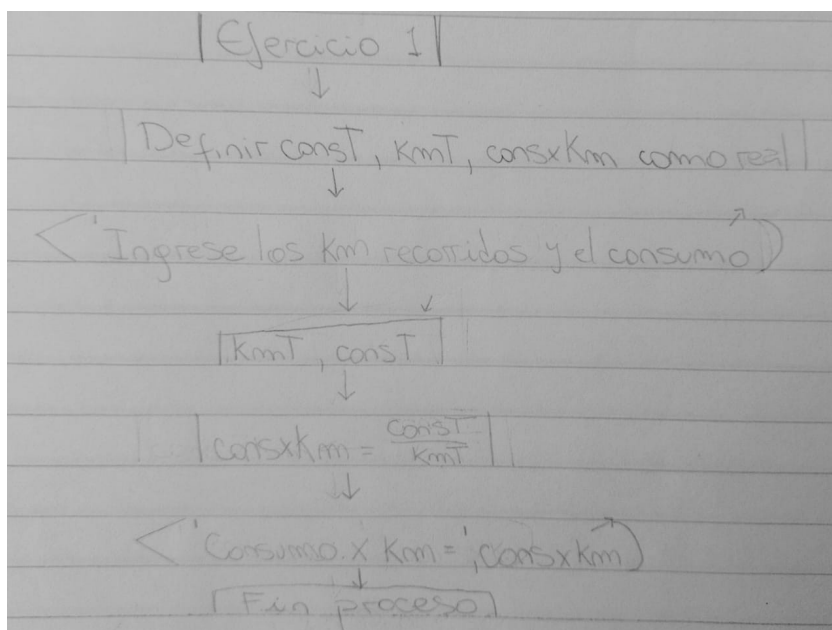 Ejercicio 1
Definir consT, KmT, consxKm como real
'Ingrese los Km recorridos y el consumo
KmT, consT
consxKm = consT
KmT
'Consumo x Km=', consxKm
Fin proceso